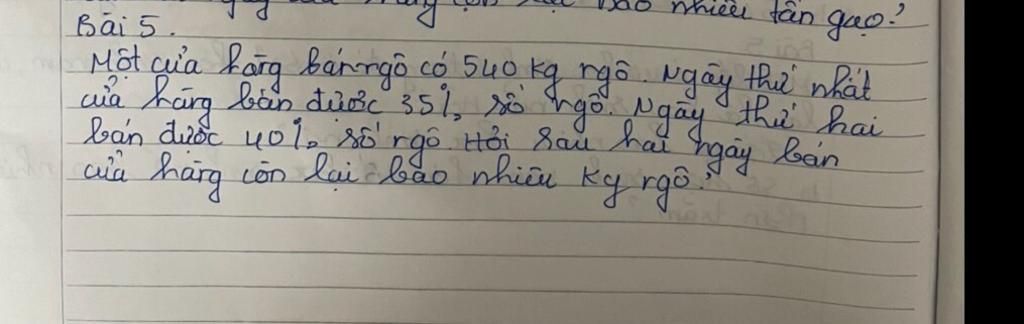 bao nhiêu tấn gạo?
Bài 5.
Một cửa hàng bán ngô có 540 kg ngô Ngày thứ nhất
cửa hàng bán được 35% số ngô. Ngày thứ hai
bán được 40% số ngô Hỏi sau hai ngày bán
cửa hàng còn lại bao nhiêu kg ngô?